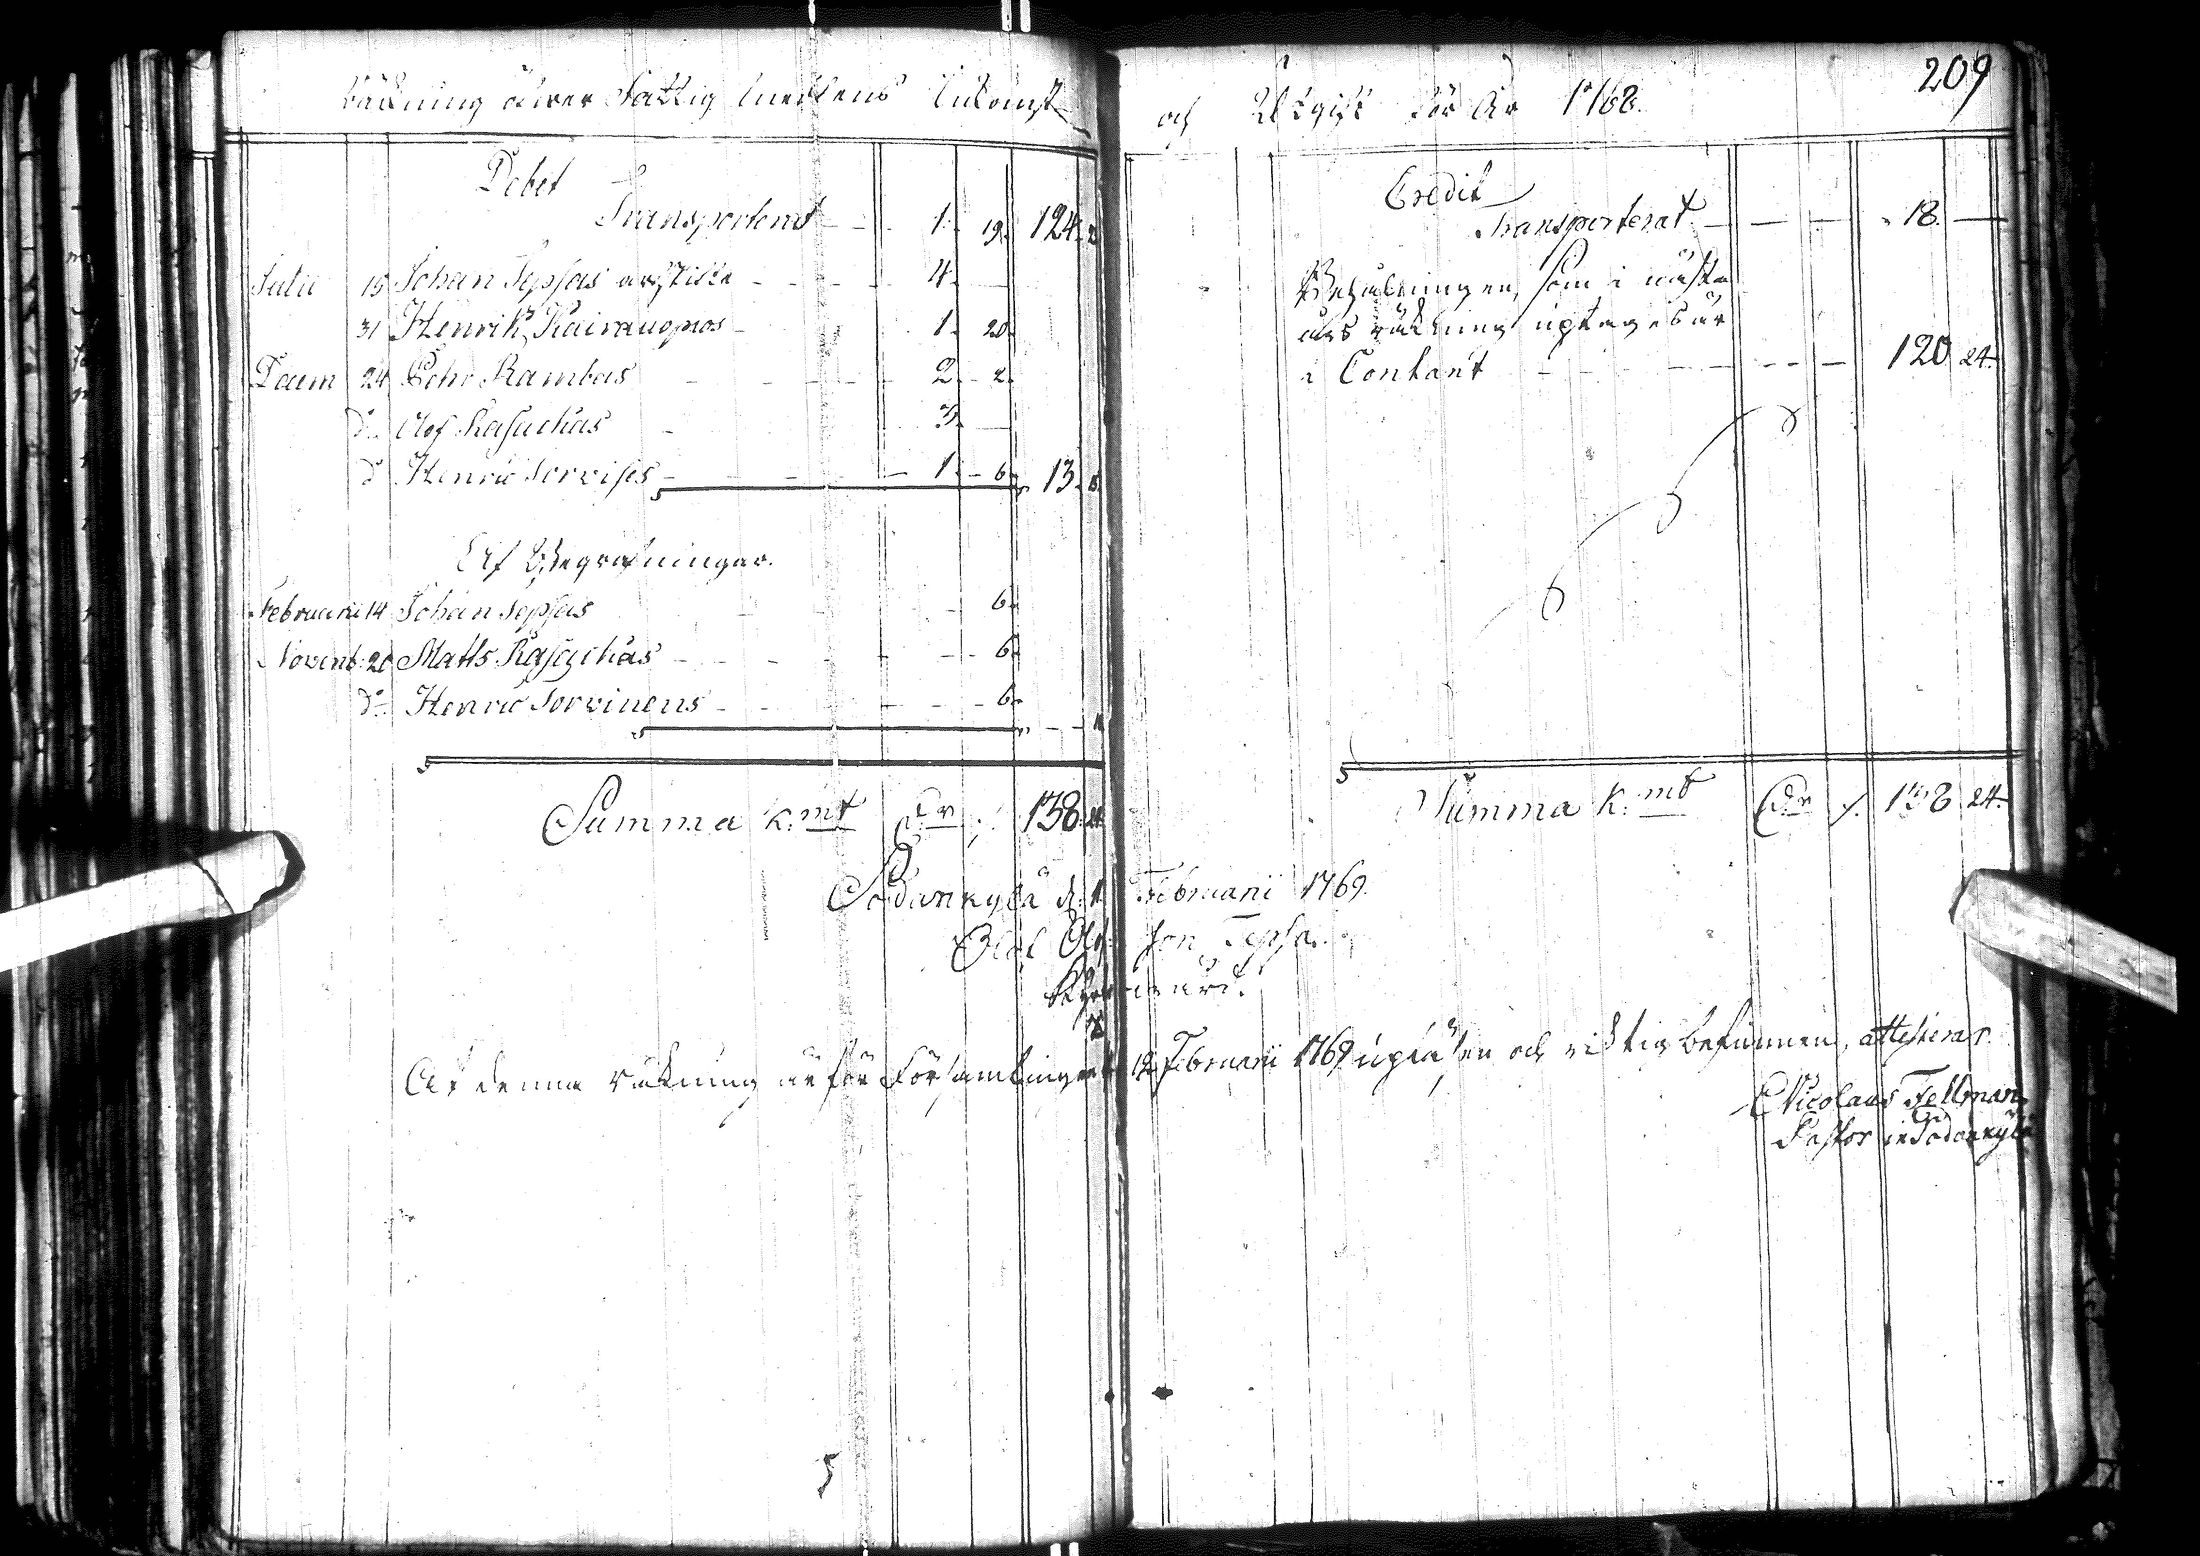 Räkning öfwer Fattig Cassens Inkomst och Utgift för År 1768.
209
Debet
Transporterat 1. 19. 124. 2
Julii 15 Johan Tepsas 4.
31 Henrik Kairanuopios 1. 20.
Decem 24 Pehr Rambas 2. 2.
d:o Olof 3.
d:o Henric Sorvises 1. 6. 13.
Af Begrafningar.
Februarii 14 Johan Tepsas 6.
Novemb: 20 Matts 6.
d:o Henric Sorvinens 6.
Summa K:mt D:r 138. 24.
Credit
Transporterat 18.
Behållningen, som i nästa
års räkning uptages är
i Contant 120 24.
Summa K:mt D:r 138 24.
Sodankylä d: 1 Februarii 1769.
Olof Olofsson Tepsa.
Kyrkiowärd.
At denna räkning är för Församlingen d 12 Februarii 1769 upläsen och riktig befunnen, attesterar.
Nicolaus Fellman
Pastor in Sodankylä